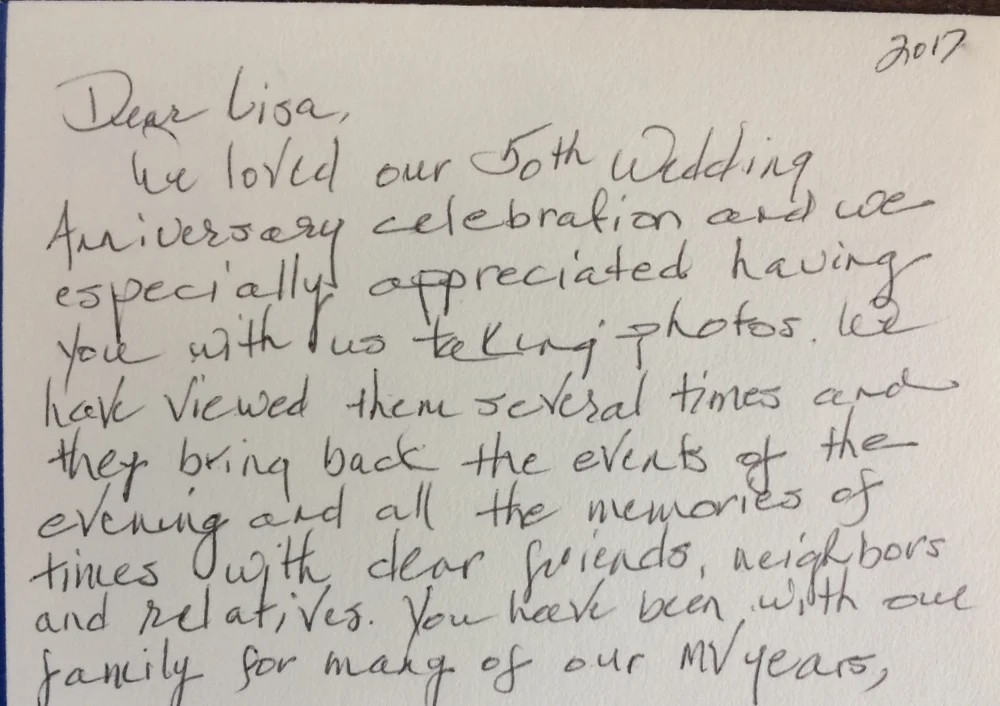 2017
Dear Lisa,
We loved our 50th Wedding
Anniversary celebration and we
especially appreciated having
you with us taking photos. We
have viewed them several times and
they bring back the events of the
evening and all the memories of
times with dear friends, neighbors
and relatives. You have been with our
family for many of our MV years,